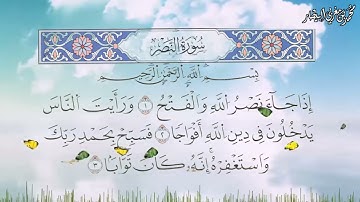 سُورَةُ النَّصْرِ
بِسْمِ ٱللَّهِ ٱلرَّحْمَٰنِ ٱلرَّحِيمِ
إِذَا جَآءَ نَصْرُ ٱللَّهِ وَٱلْفَتْحُ ١ وَرَأَيْتَ ٱلنَّاسَ
يَدْخُلُونَ فِى دِينِ ٱللَّهِ أَفْوَاجًا ٢ فَسَبِّحْ بِحَمْدِ رَبِّكَ
وَٱسْتَغْفِرْهُ إِنَّهُۥ كَانَ تَوَّابًۢا ٣